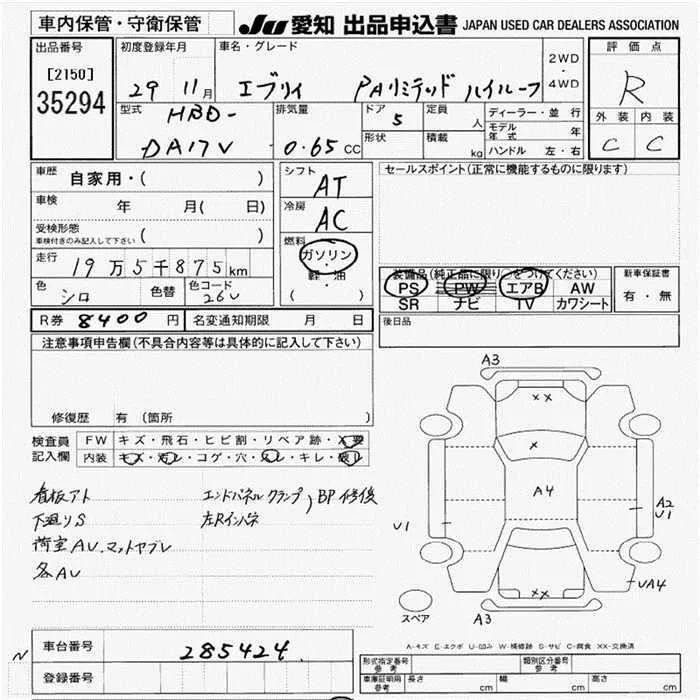 車内保管・守衛保管
JU 愛知 出品申込書 JAPAN USED CAR DEALERS ASSOCIATION
出品番号
[2150]
35294
初度登録年月
29 11月
車名・グレード
エブリイ PAリミテッド ハイルーフ
2WD
・
4WD
評価点
R
外装 内装
C C
型式
HBD-
DA17V
排気量
0.65 CC
ドア
5
定員
人
形状
積載
kg
ディーラー・並行
モデル年式 年
ハンドル 左・右
車歴
自家用・( )
車検
年 月( 日)
受検形態
車検付きのみ記入して下さい ( )
走行
19万5千875km
色
シロ
色替
色コード
26V
シフト
AT
冷房
AC
燃料
ガソリン
・
軽油
( )
セールスポイント(正常に機能するものに限ります)
装備品(純正品に限り○をつけてください)
PS PW エアB AW
SR ナビ TV カワシート
新車保証書
有・無
R券 8400 円
名変通知期限 月 日
後日品
注意事項申告欄(不具合内容等は具体的に記入して下さい)
修復歴 有 (箇所 )
検査員
記入欄
FW キズ・飛石・ヒビ割・リペア跡・X要
内装
看板アト エンドパネルクランプ, BP修復
下廻りS 左Rインパネ
荷室AU.マットヤブレ
各AU
A3
××
×
A4
U1
A2
U1
UA4
××
A3
スペア
A-キズ E-エクボ U-凹み W-補修跡 S-サビ C-腐食 XX-交換済
N
車台番号
285424
登録番号
形式指定番号
参考
類別区分番号
参考
車庫証明用
参考
長さ cm 幅 cm 高さ cm